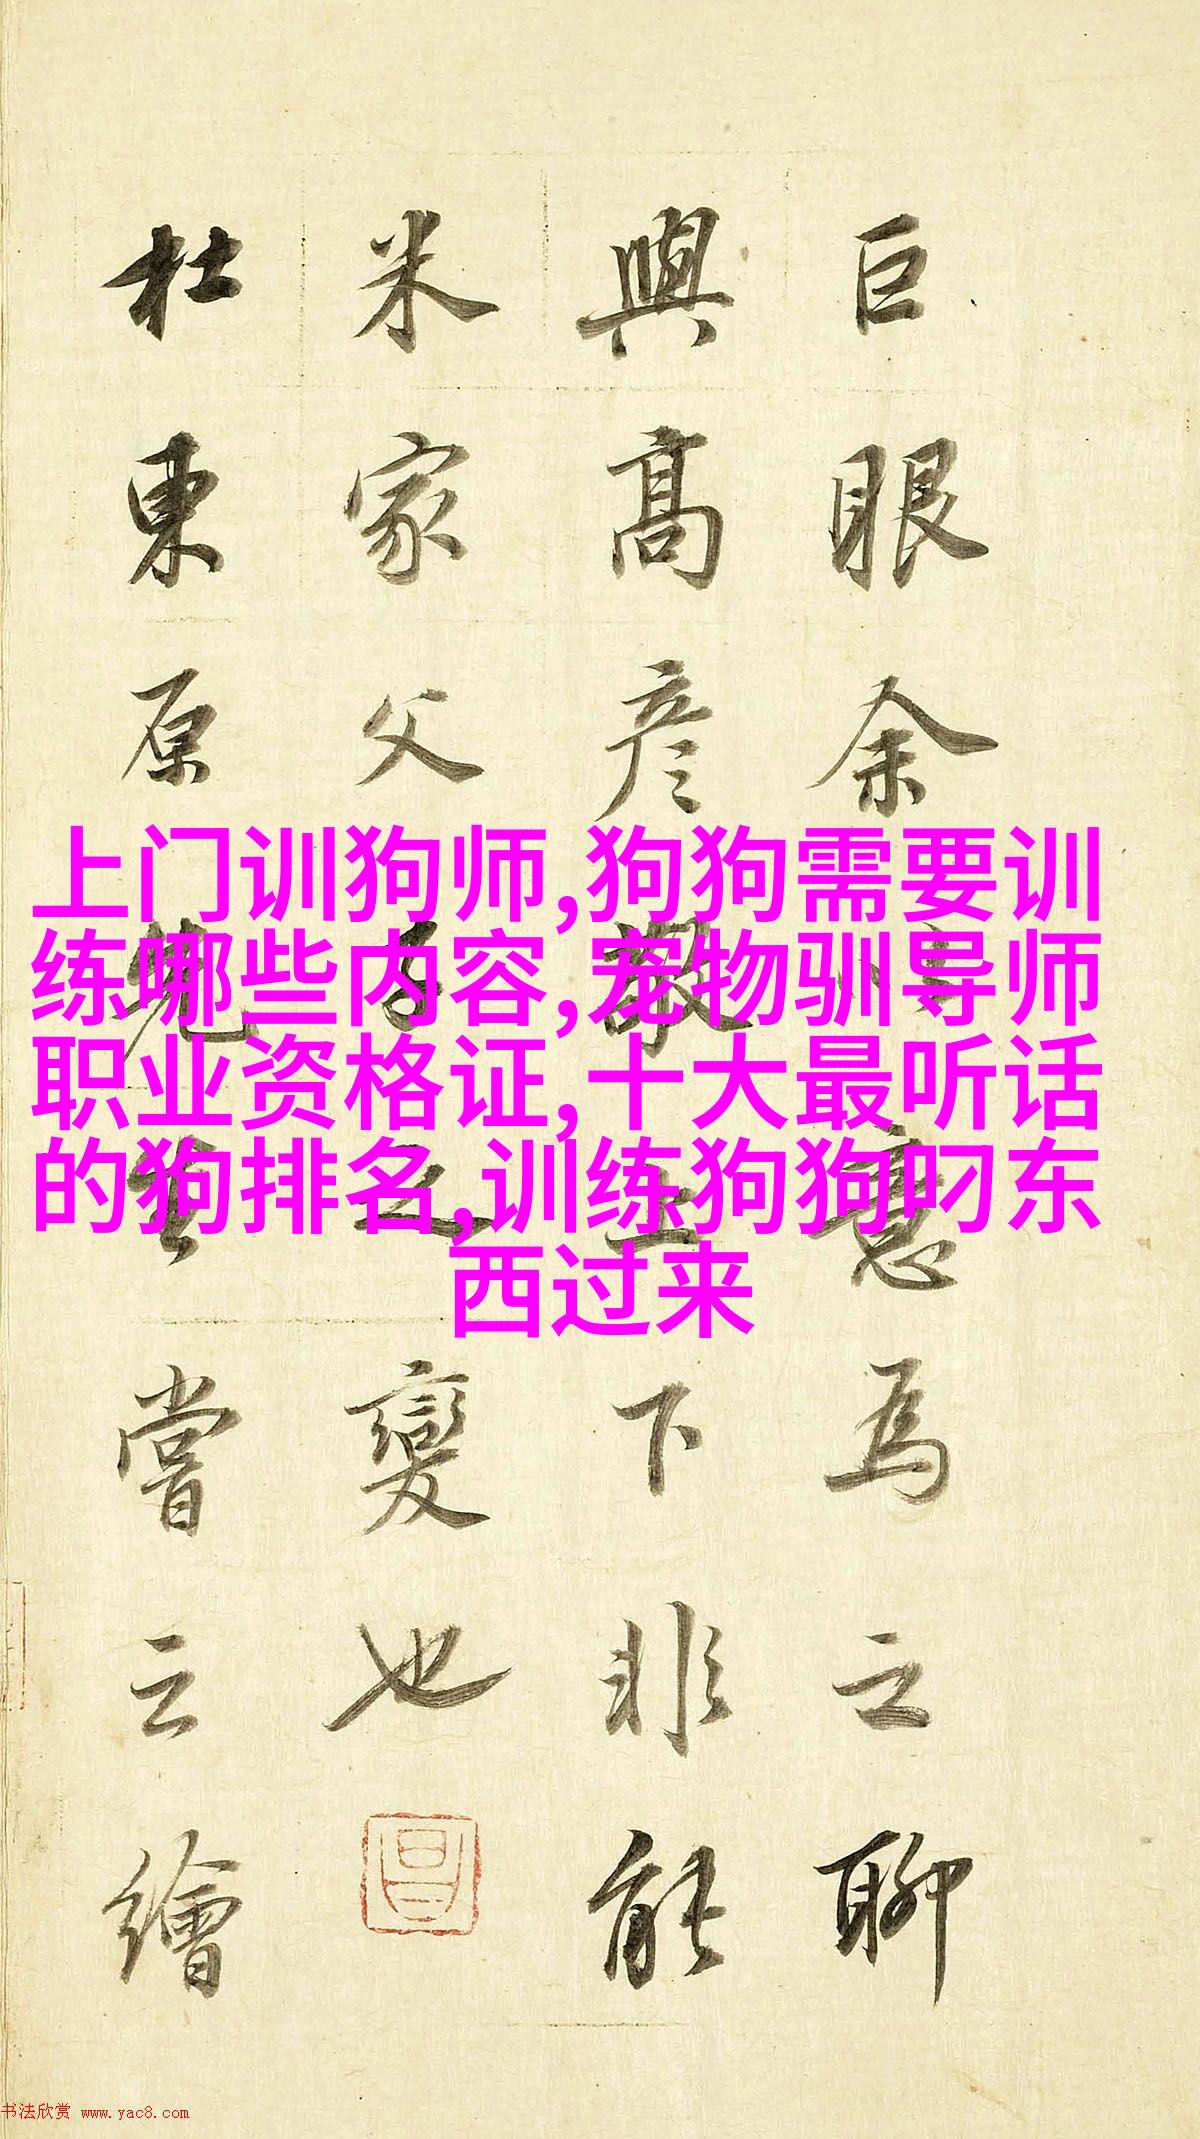 巨眼余意為之聊
與高彦敬上下非能
米家父子之變也
杜東原先生嘗云繪
上门训狗师,狗狗需要训
练哪些内容,宠物驯导师
职业资格证,十大最听话
的狗排名,训练狗狗叼东
西过来
书法欣赏 www.yac8.com